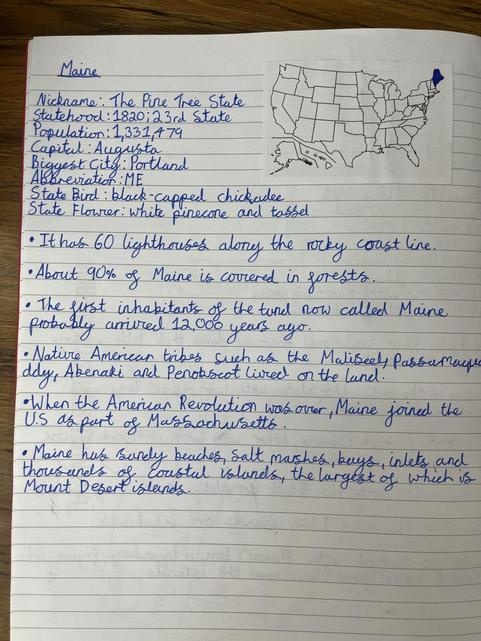 Maine
Nickname: The Pine Tree State
Statehood: 1820; 23rd State
Population: 1,331,479
Capital: Augusta
Biggest City: Portland
Abbreviation: ME
State Bird: black-capped chickadee
State Flower: white pinecone and tassel
• It has 60 lighthouses along the rocky coast line.
• About 90% of Maine is covered in forests.
• The first inhabitants of the land now called Maine
probably arrived 12,000 years ago.
• Native American tribes such as the Maliseel, Passamaquo
ddy, Abenaki and Penobscot lived on the land.
• When the American Revolution was over, Maine joined the
U.S as part of Massachusetts.
• Maine has sandy beaches, salt mashes, bays, inlets and
thousands of coastal islands, the largest of which is
Mount Desert islands.